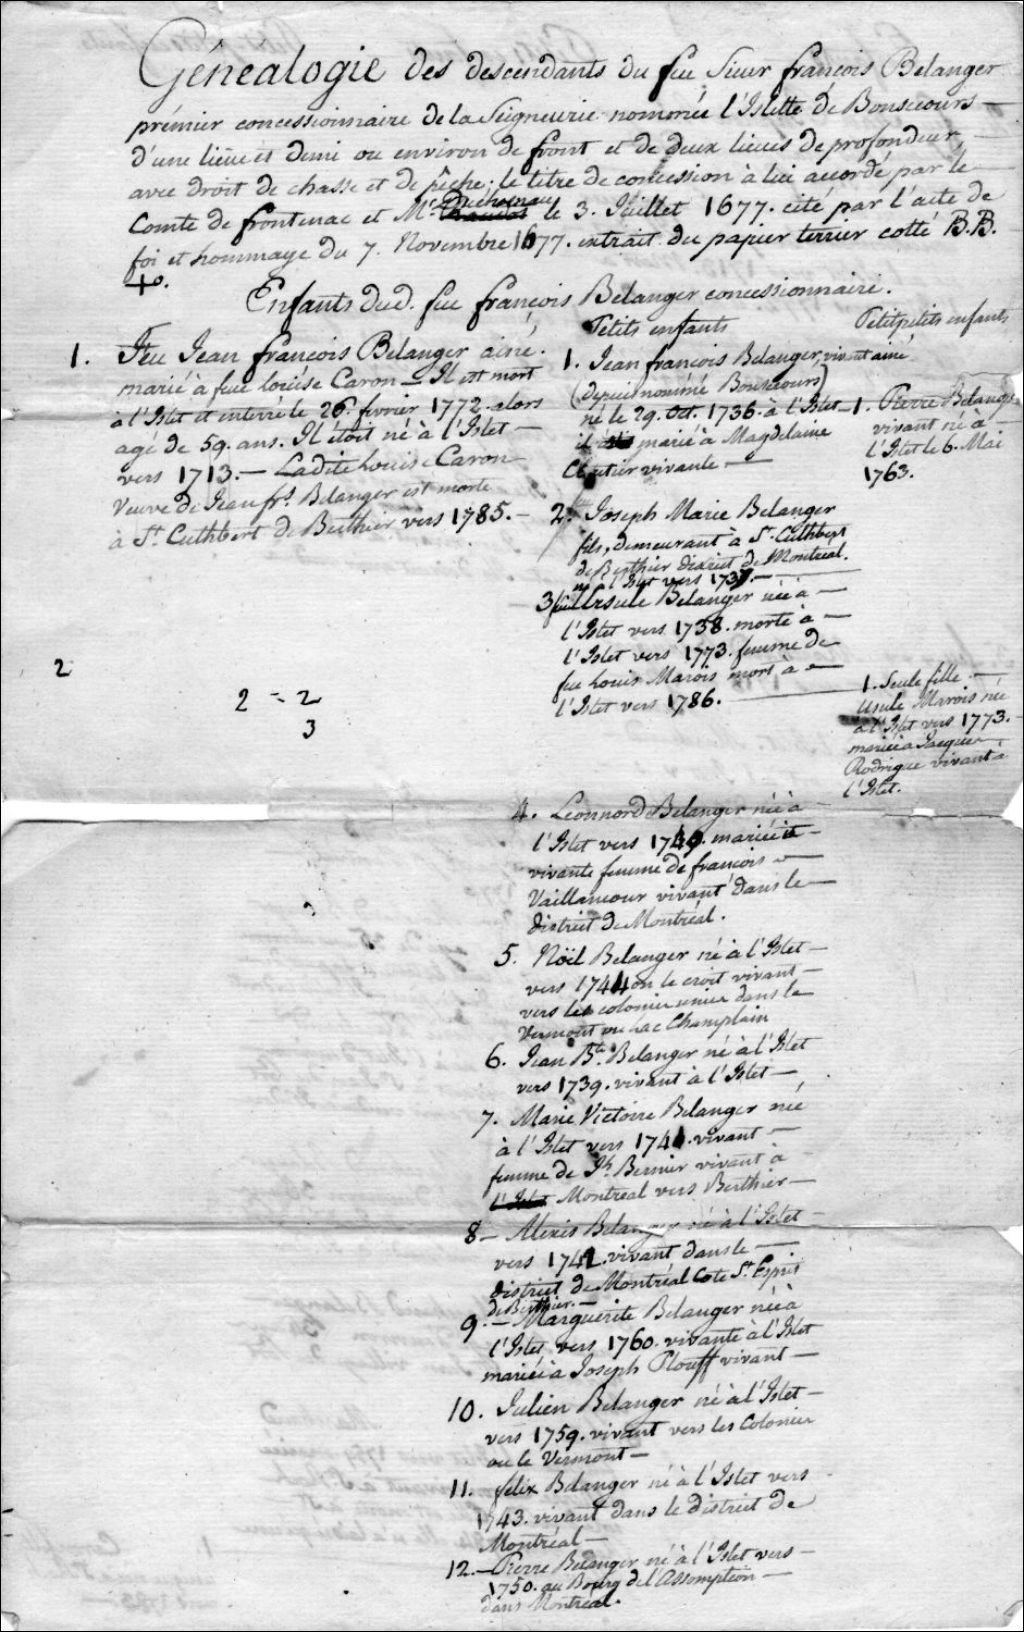 Généalogie des descendants du feu Sieur françois Belanger
prémier concessionnaire de la Seigneurie nommée l'Islette de Bonsecours —
d'une lieue et demi ou environ de front et de deux lieues de profondeur —
avec droit de chasse et de pêche; le titre de concession à lui accordé par le
Duchesnau
Comte de frontenac et Mr. le 3. Juillet 1677. cité par l'acte de
foi et hommage du 7. Novembre 1677. extrait du papier terrier cotté B.B.
Enfants dud. feu françois Belanger concessionnaire.
Petits enfants
Petitpetits enfants
1. Feu Jean françois Belanger ainé.
marié à feue loüise Caron — Il est mort
à l'Islet et enterré le 26. fevrier 1772. alors
agé de 59. ans. Il étoit né à l'Islet —
vers 1713. — Ladite Louise Caron
Veuve de Jean frs. Belanger est morte
à St. Cuthbert de Berthier vers 1785. —
2
2 = 2
3
1. Jean françois Belanger, vivant ainé
(depuis nommé Bonsecours)
né le 29. Oct. 1736. à l'Islet —
il marié à Magdelaine
Cloutier vivante —
2. Joseph Marie Belanger
fils, demeurant à St. Cuthbert
de Berthier district de Montreal.
né à l'Islet vers 1737. —
3 feue Ursule Belanger née à —
l'Islet vers 1738. morte à —
l'Islet vers 1773. femme de
feu Louis Marois mort à —
l'Islet vers 1786. —
1. Pierre Belanger
vivant né à —
l'Islet le 6. Mai
1763.
1. Seule fille —
Usule Marois née
à l'Islet vers 1773. —
mariée à Jacques
Rodrigue vivant à
l'Islet.
4. Leonnord Belanger née à —
l'Islet vers 1740. mariée et —
vivante femme de françois —
Vaillancour vivant dans le —
district de Montréal.
5. Nöil Belanger né à l'Islet —
vers 1744 on le croit vivant —
vers les colonies unies dans le
Vermont ou Lac Champlain
6. Jean Bte. Belanger né à l'Islet
vers 1739. vivant à l'Islet —
7. Marie Victoire Belanger née
à l'Islet vers 1741. vivant —
femme de Jh. Bernier vivant à
l'Islet Montreal vers Berthier —
8 — Alexis Belanger né à l'Islet —
vers 1742. vivant dans le —
district de Montréal Cote St. Espris
de Berthier. —
9. — Marguerite Belanger née à
l'Islet vers 1760. vivante à l'Islet
mariée à Joseph Plouff vivant —
10. Julien Belanger né à l'Islet —
vers 1759. vivant vers les Colonies
ou le Vermont —
11. felix Belanger né à l'Islet vers
1743. vivant dans le district de
Montréal —
12. — Pierre Belanger né à l'Islet vers —
1750. au Bourg de l'Assomption —
dans Montréal.